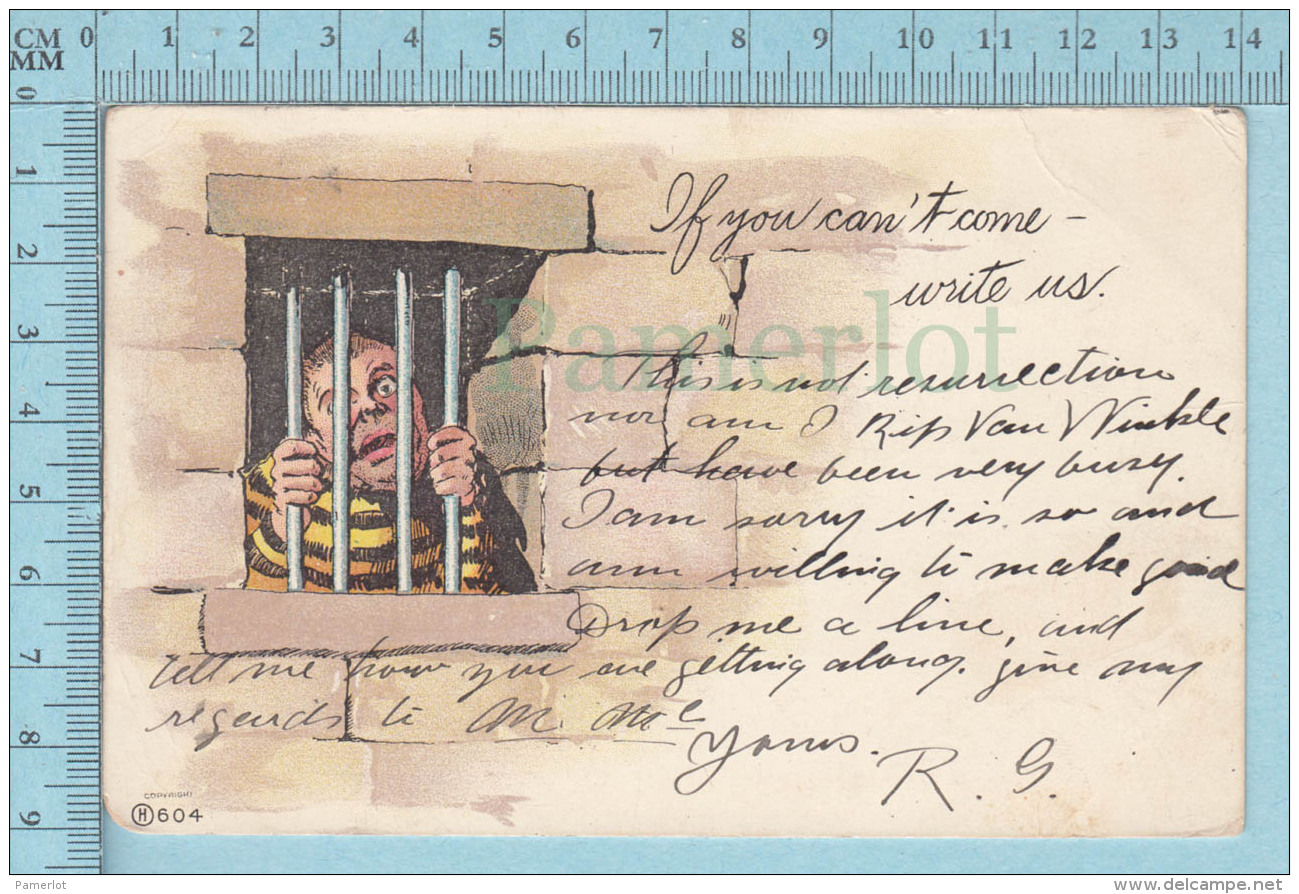 CM 0 1 2 3 4 5 6 7 8 9 10 11 12 13 14
MM
0
1
2
3
4
5
6
7
8
9
If you can't come –
write us.
Pamerlot
This is not resurrection
nor am I Rip Van Winkle
but have been very busy.
I am sorry it is so and
am willing to make good
Drop me a line, and
tell me how you are getting along. give my
regards to M. Mc
Yours.
R. G.
COPYRIGHT
H 604
Pamerlot
www.delcampe.net